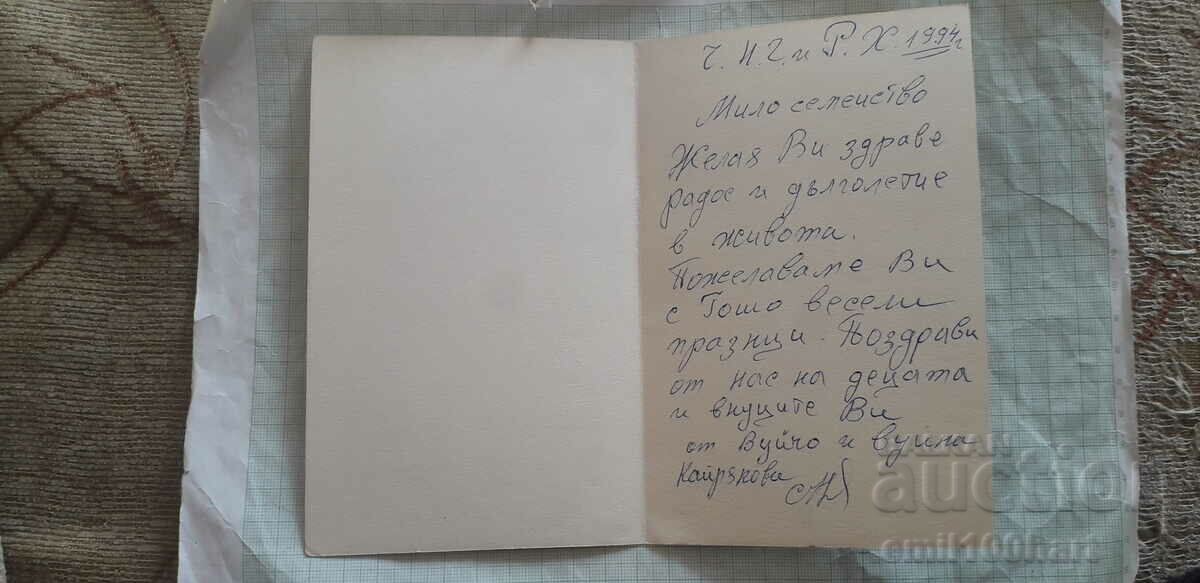 Ч. Н. Г. и Р. Х. 1994г
Мило семейство
Желая Ви здраве
радос и дълголетие
в живота.
Пожелаваме Ви
с Гошо весели
празнци. Поздрави
от нас на децата
и внуците Ви
от Вуйчо и вуйна
Кайрякови
BALKAN
auction
emil100hart